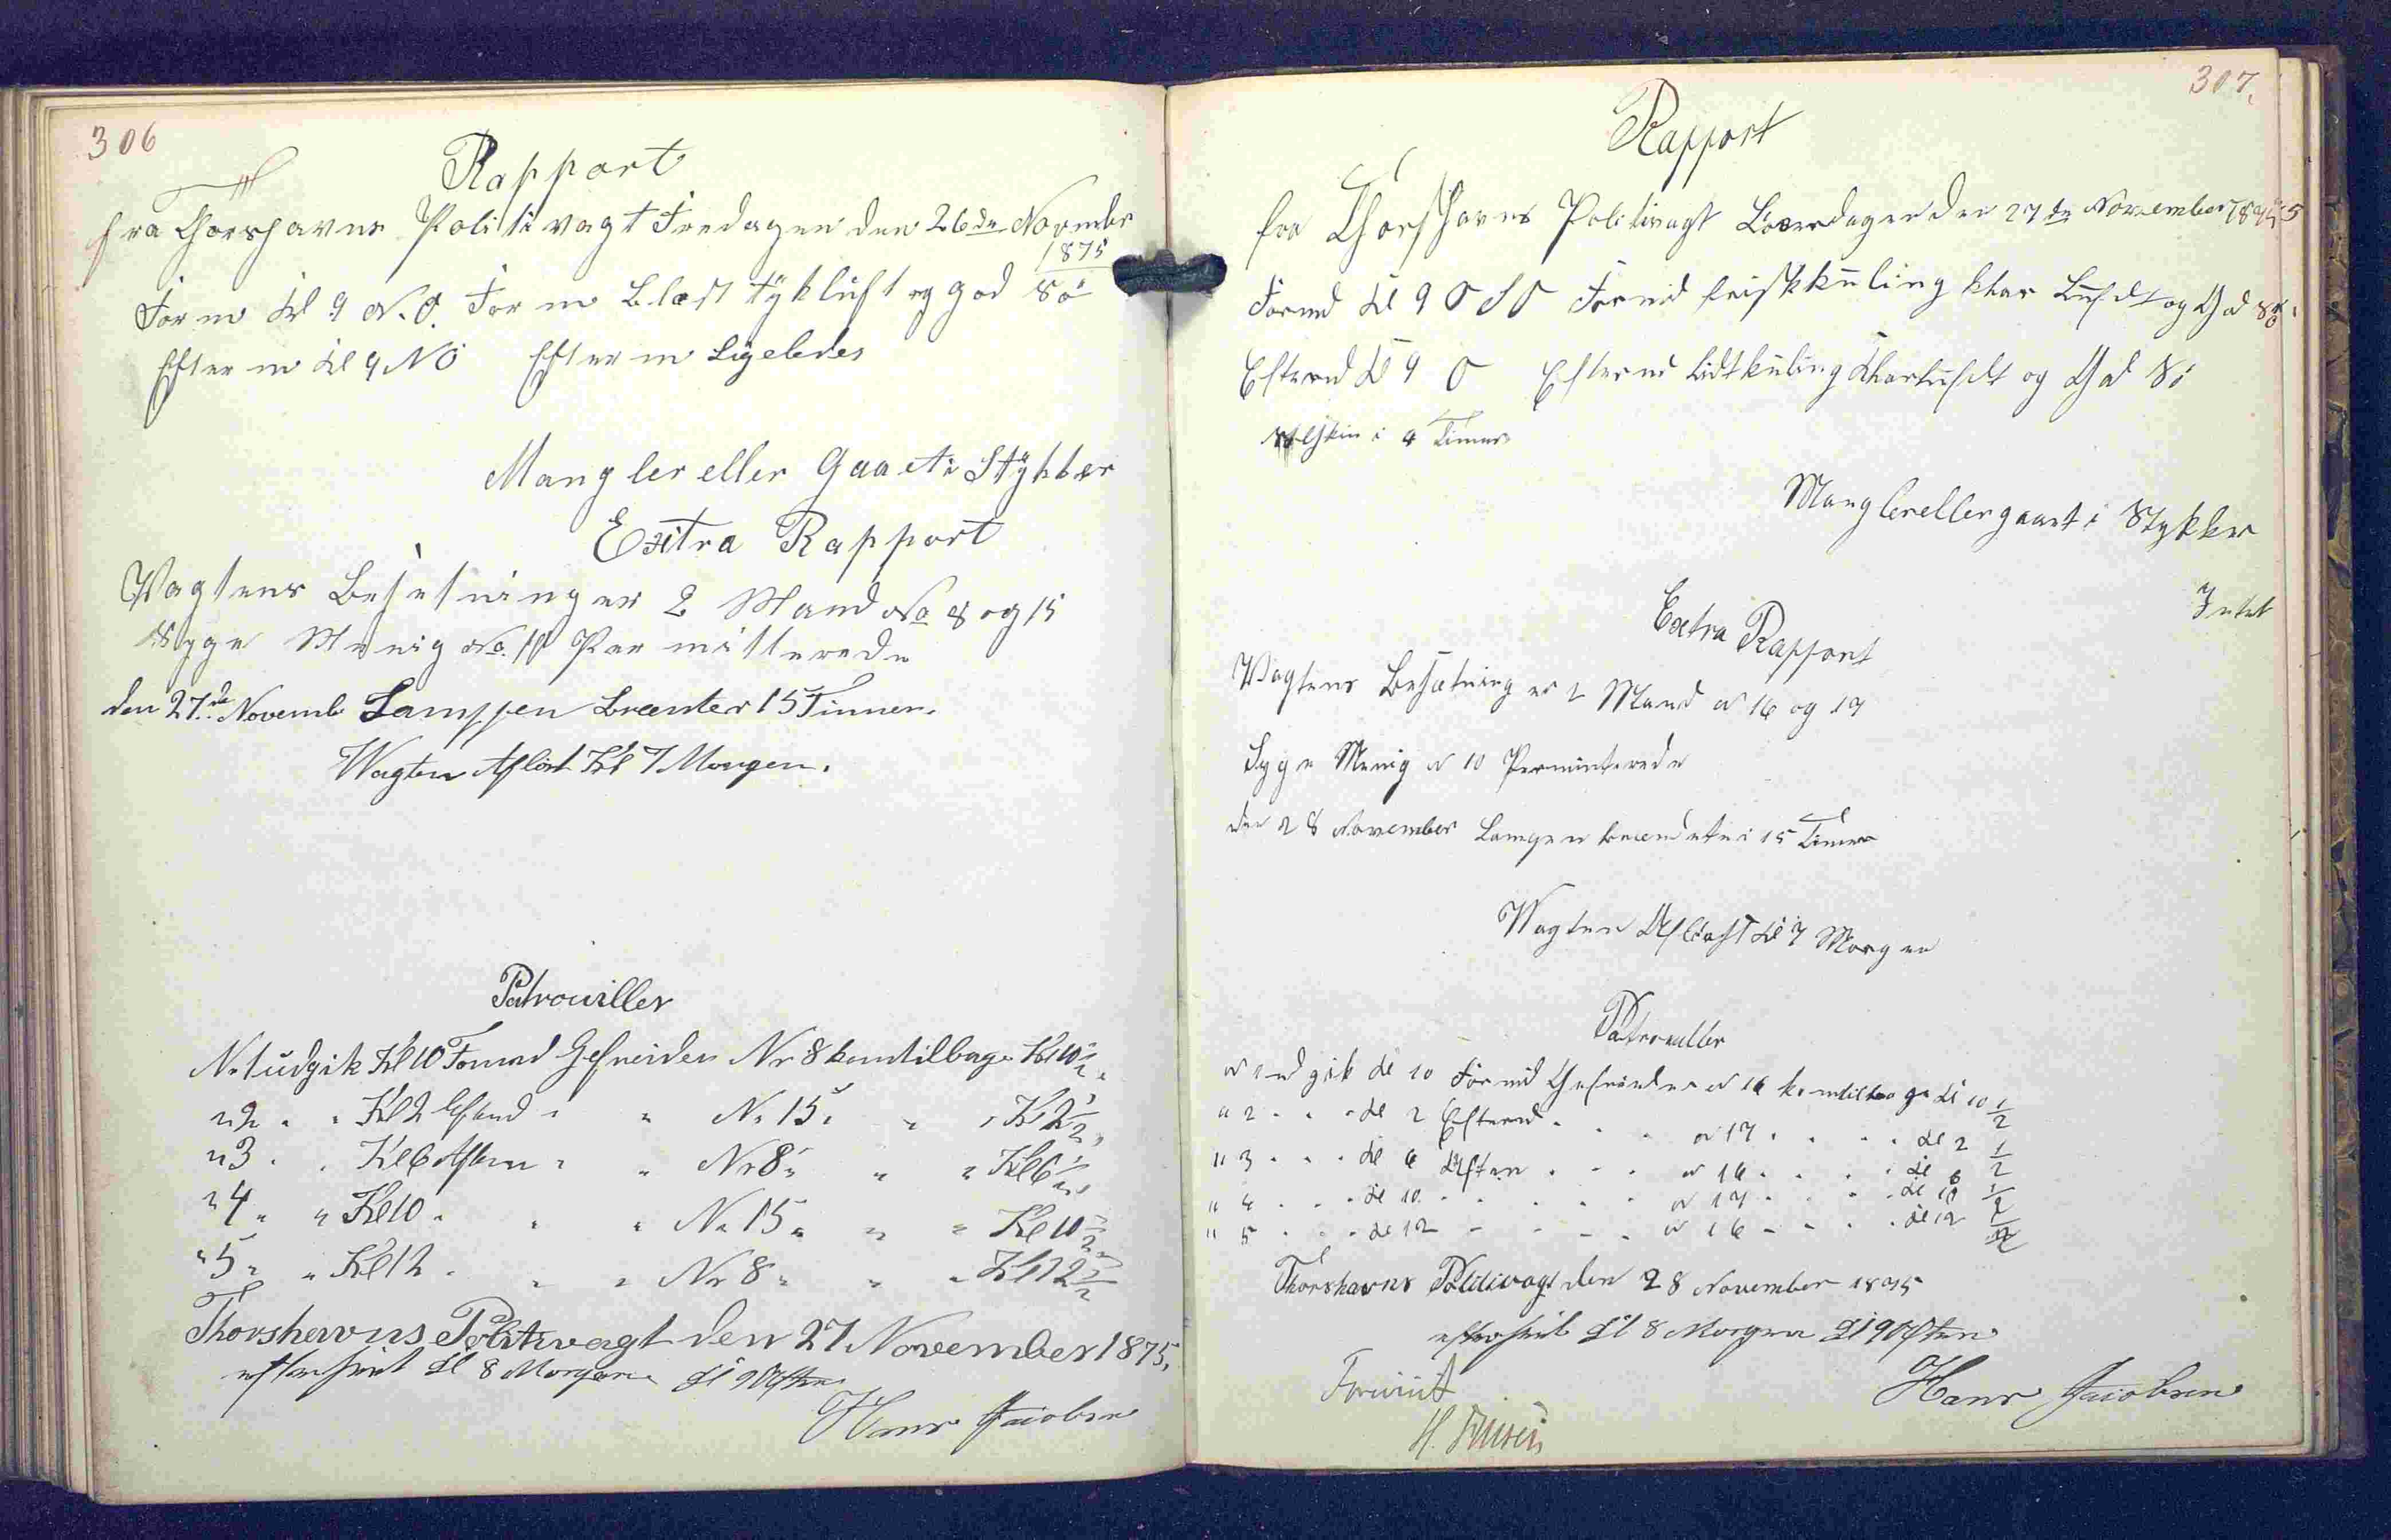 306
Rapport
fra Thorshavns Politivagt Fredagen den 26de November
1875
Form Kl 9 N.O. Form Blæst tykluft og god Sö
Efterm Kl 9 NO Efterm Ligeledes
Mangler eller Gaaet i Stykker
Extra Rapport
Vagtens Besetning er 2 Mand No 8 og 15
Syge Menig No. 10 Permitterede
den 27de Novemb Lampen Brænter 15 Timer.
Wagten Aflöst Kl 7 Morgen.
Patrouiller
Nr 1 udgik Kl 10 Formd Gefreider Nr 8 komtilbage Kl 10 1/2 "
" 2 " " Kl 2 Eftmd " " Nr 15 " " " Kl 2 1/2 "
" 3 " " Kl 6 Aften " " Nr 8 " " " Kl 6 1/2 "
" 4 " " Kl 10 " " " Nr 15 " " " Kl 10 1/2 "
" 5 " " Kl 12 " " " Nr 8 " " " Kl 12 1/2
Thorshavns Politivagt den 27 November 1875.
efterseet Kl 8 Morgen Kl 9 Aften
Hans Jacobsen
307.
Rapport
fra Thorshavns Politivagt Löverdagen den 27de November 1875
Formd Kl 9 O S O Formd friskkuling klar Lufdt og God Sö
Eftermd Kl 9 O Eftermd lidtkuling Kharlufdt og God Sö
Solskin i 4 Timer
Manglerellergaaet i Stykker
Intet
Extra Rapport
Vagtens Besætning er 2 Mand N 16 og 17
Syge Menig N 10 Perminterede
den 28 November Lampen brændte i 15 Timer
Wagten Aflöst Kl 7 Morgen
Patrouller
N 1 ud gik Kl 10 Formd Gefreider N 16 komtilbage Kl 10 1/2
" 2 " " " Kl 2 Eftermd " " " N 17 " " " " Kl 2 1/2
" 3 " " " Kl 6 Aften " " " N 16 " " " " Kl 6 1/2
" 4 " " " Kl 10 " " " " " N 17 " " " " Kl 10 1/2
" 5 " " " Kl 12 " " " " N 16 " " " " Kl 12
Thorshavns Politivagt den 28 November 1875
efterseet Kl 8 Morgen Kl 9 Aften
Hans Jacobsen